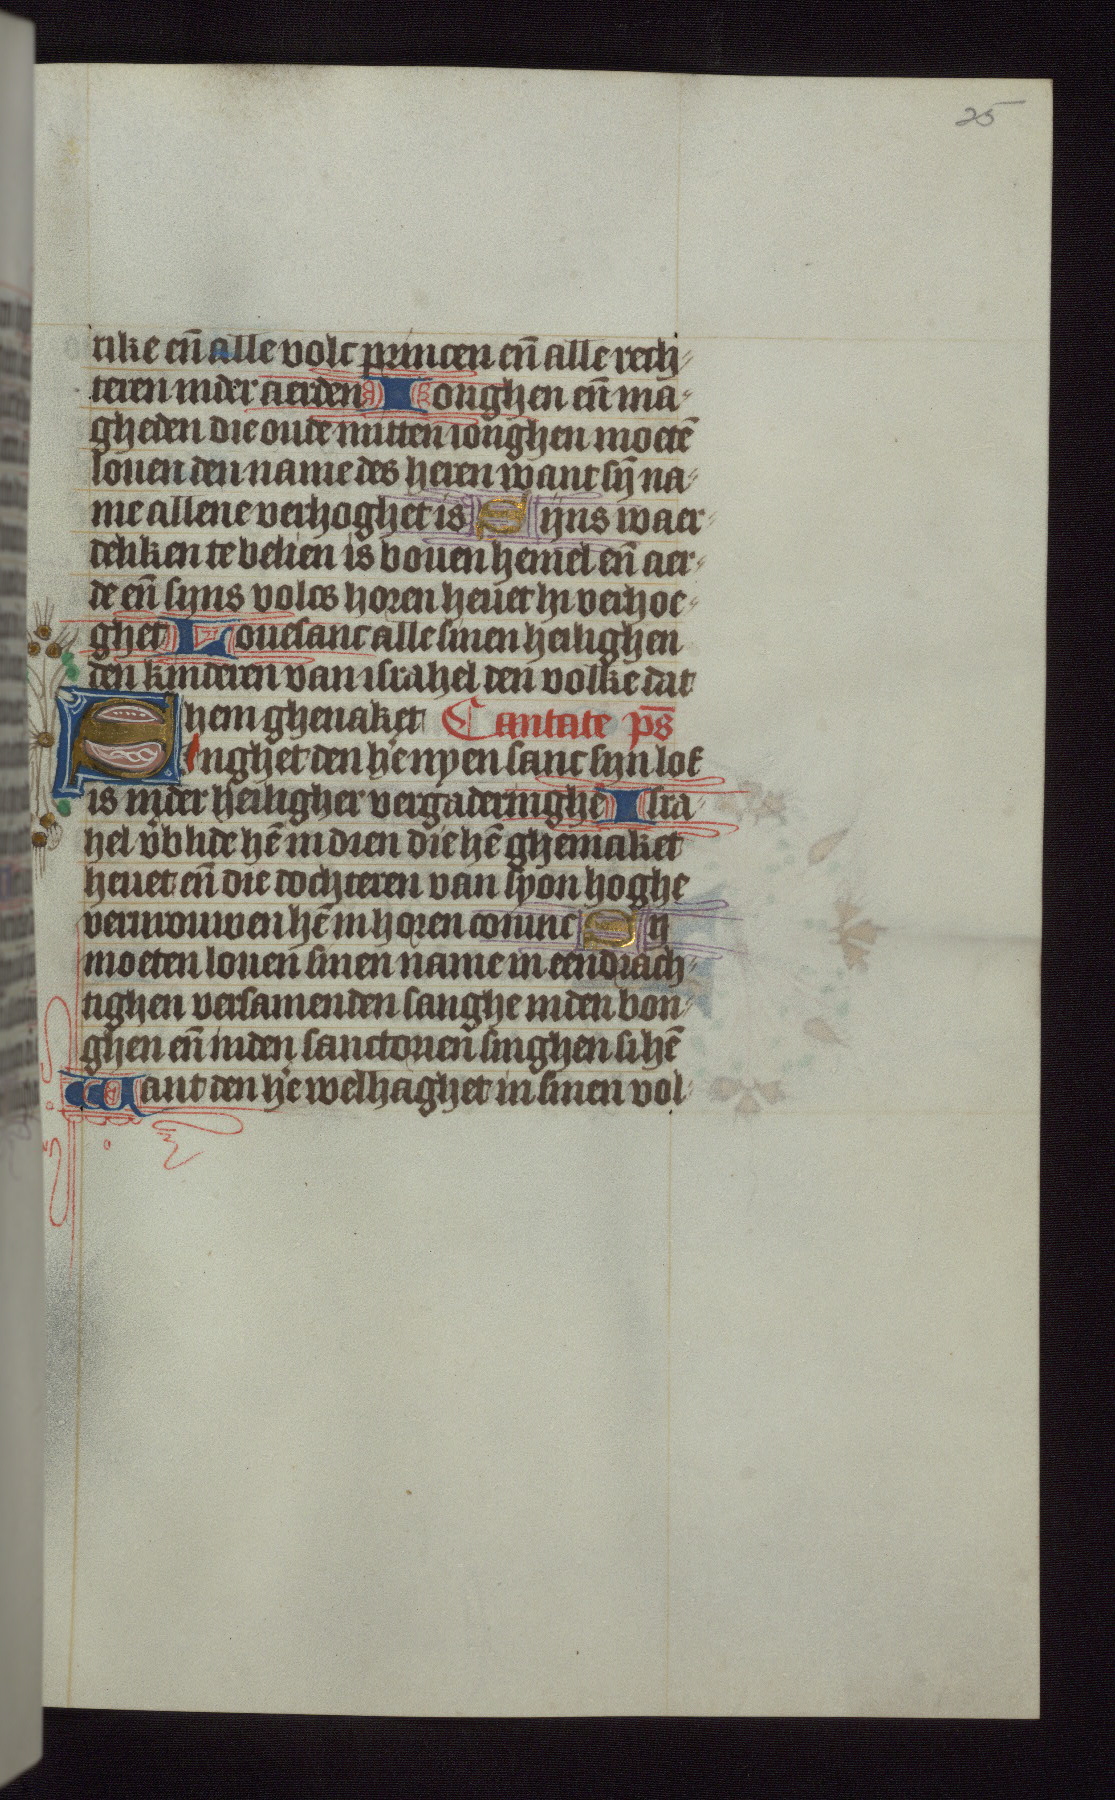 25
rike en̄ alle volc princen en̄ alle rech
teren inder aerden Ionghen en̄ ma
gheden die oude mitten ionghen moetē
louen den name des heren want sijn na
me allene verhoghet is Sijns waer
deliken te belien is bouen hemel en̄ aer
de en̄ sijns volcs horen heuet hi verhoe
ghet Louesanc alle sinen heilighen
den kinderen van israhel den volke dat
hem ghenaket Cantate ps̄
Singhet den he nyen sanc sijn lof
is inder heiligher vergaderinghe Isra
hel vbblide hē in dien die hē ghemaket
heuet en̄ die dochteren van syon hoghe
vervrouwen hē in horen coninc Si
moeten louen sinen name in eendrach
tighen versamenden sanghe inden bon
ghen en̄ inden sanctoueñ singhen si hē
Want den he welhaghet in sinen vol